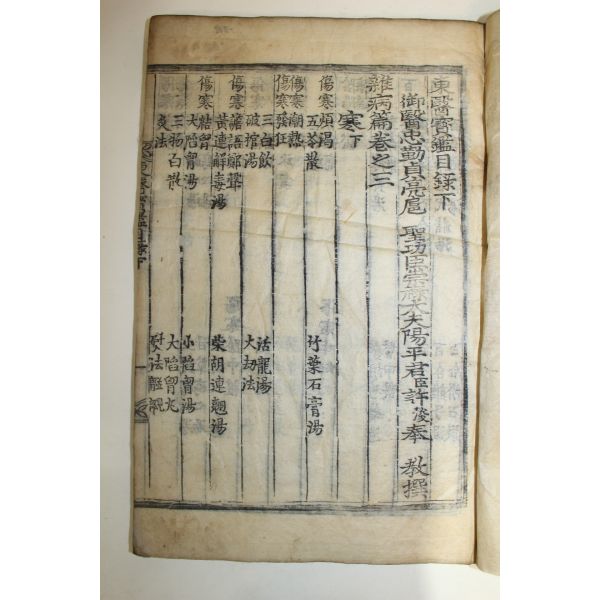 東醫寶鑑目錄下
御醫忠勤貞亮扈 聖功臣崇祿大夫陽平君臣許浚奉 教撰
雜病篇卷之三
寒下
傷寒煩渴
五苓散 竹葉石膏湯
傷寒潮熱
傷寒發狂
三白飲 活龍湯
破棺湯 大劫法
傷寒譫語鄭聲
黃連解毒湯 柴胡連翹湯
傷寒結胷
大陷胷湯 小陷胷湯
三物白散 大陷胷丸
灸法